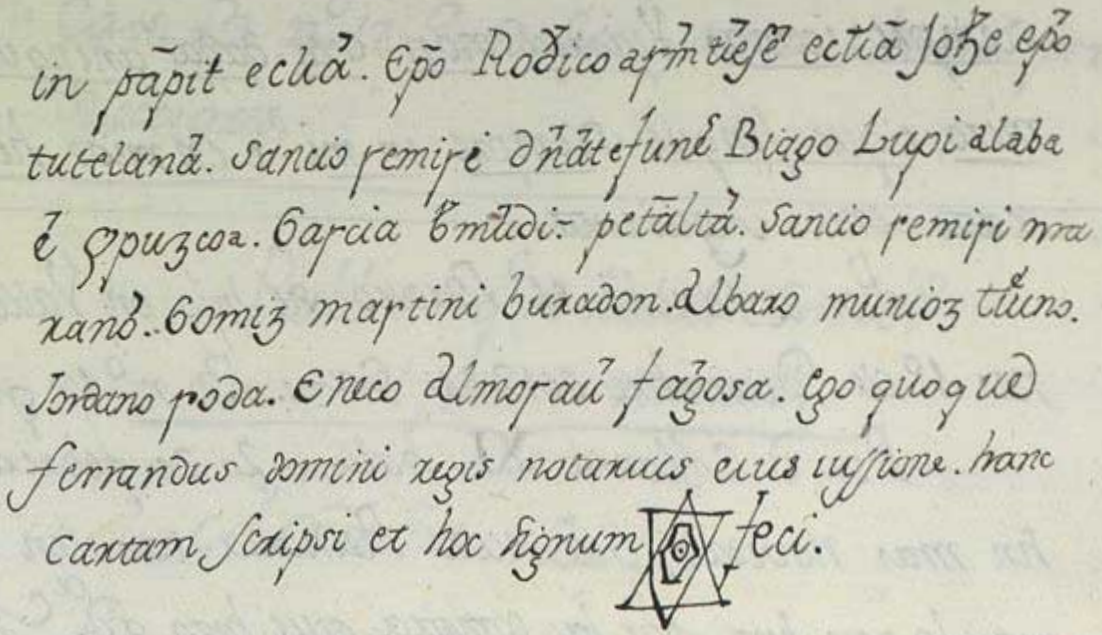 in pāpit eclīā. Epō Rodico armītiēsē ecliā Johe epō
tutelanā. Sancio remiri dñātefunē Diago Lupi alaba
ē ypuzcoa. Garcia bmūdi- petāltā. Sancio remiri ma
ranō. Gomiz martini buradon. Albaro munioz
Jordano roda. Eneco Almorau fagosa. Ego quoque
ferrandus domini regis notarius eius iussione. hanc
cartam scripsi et hoc signum feci.